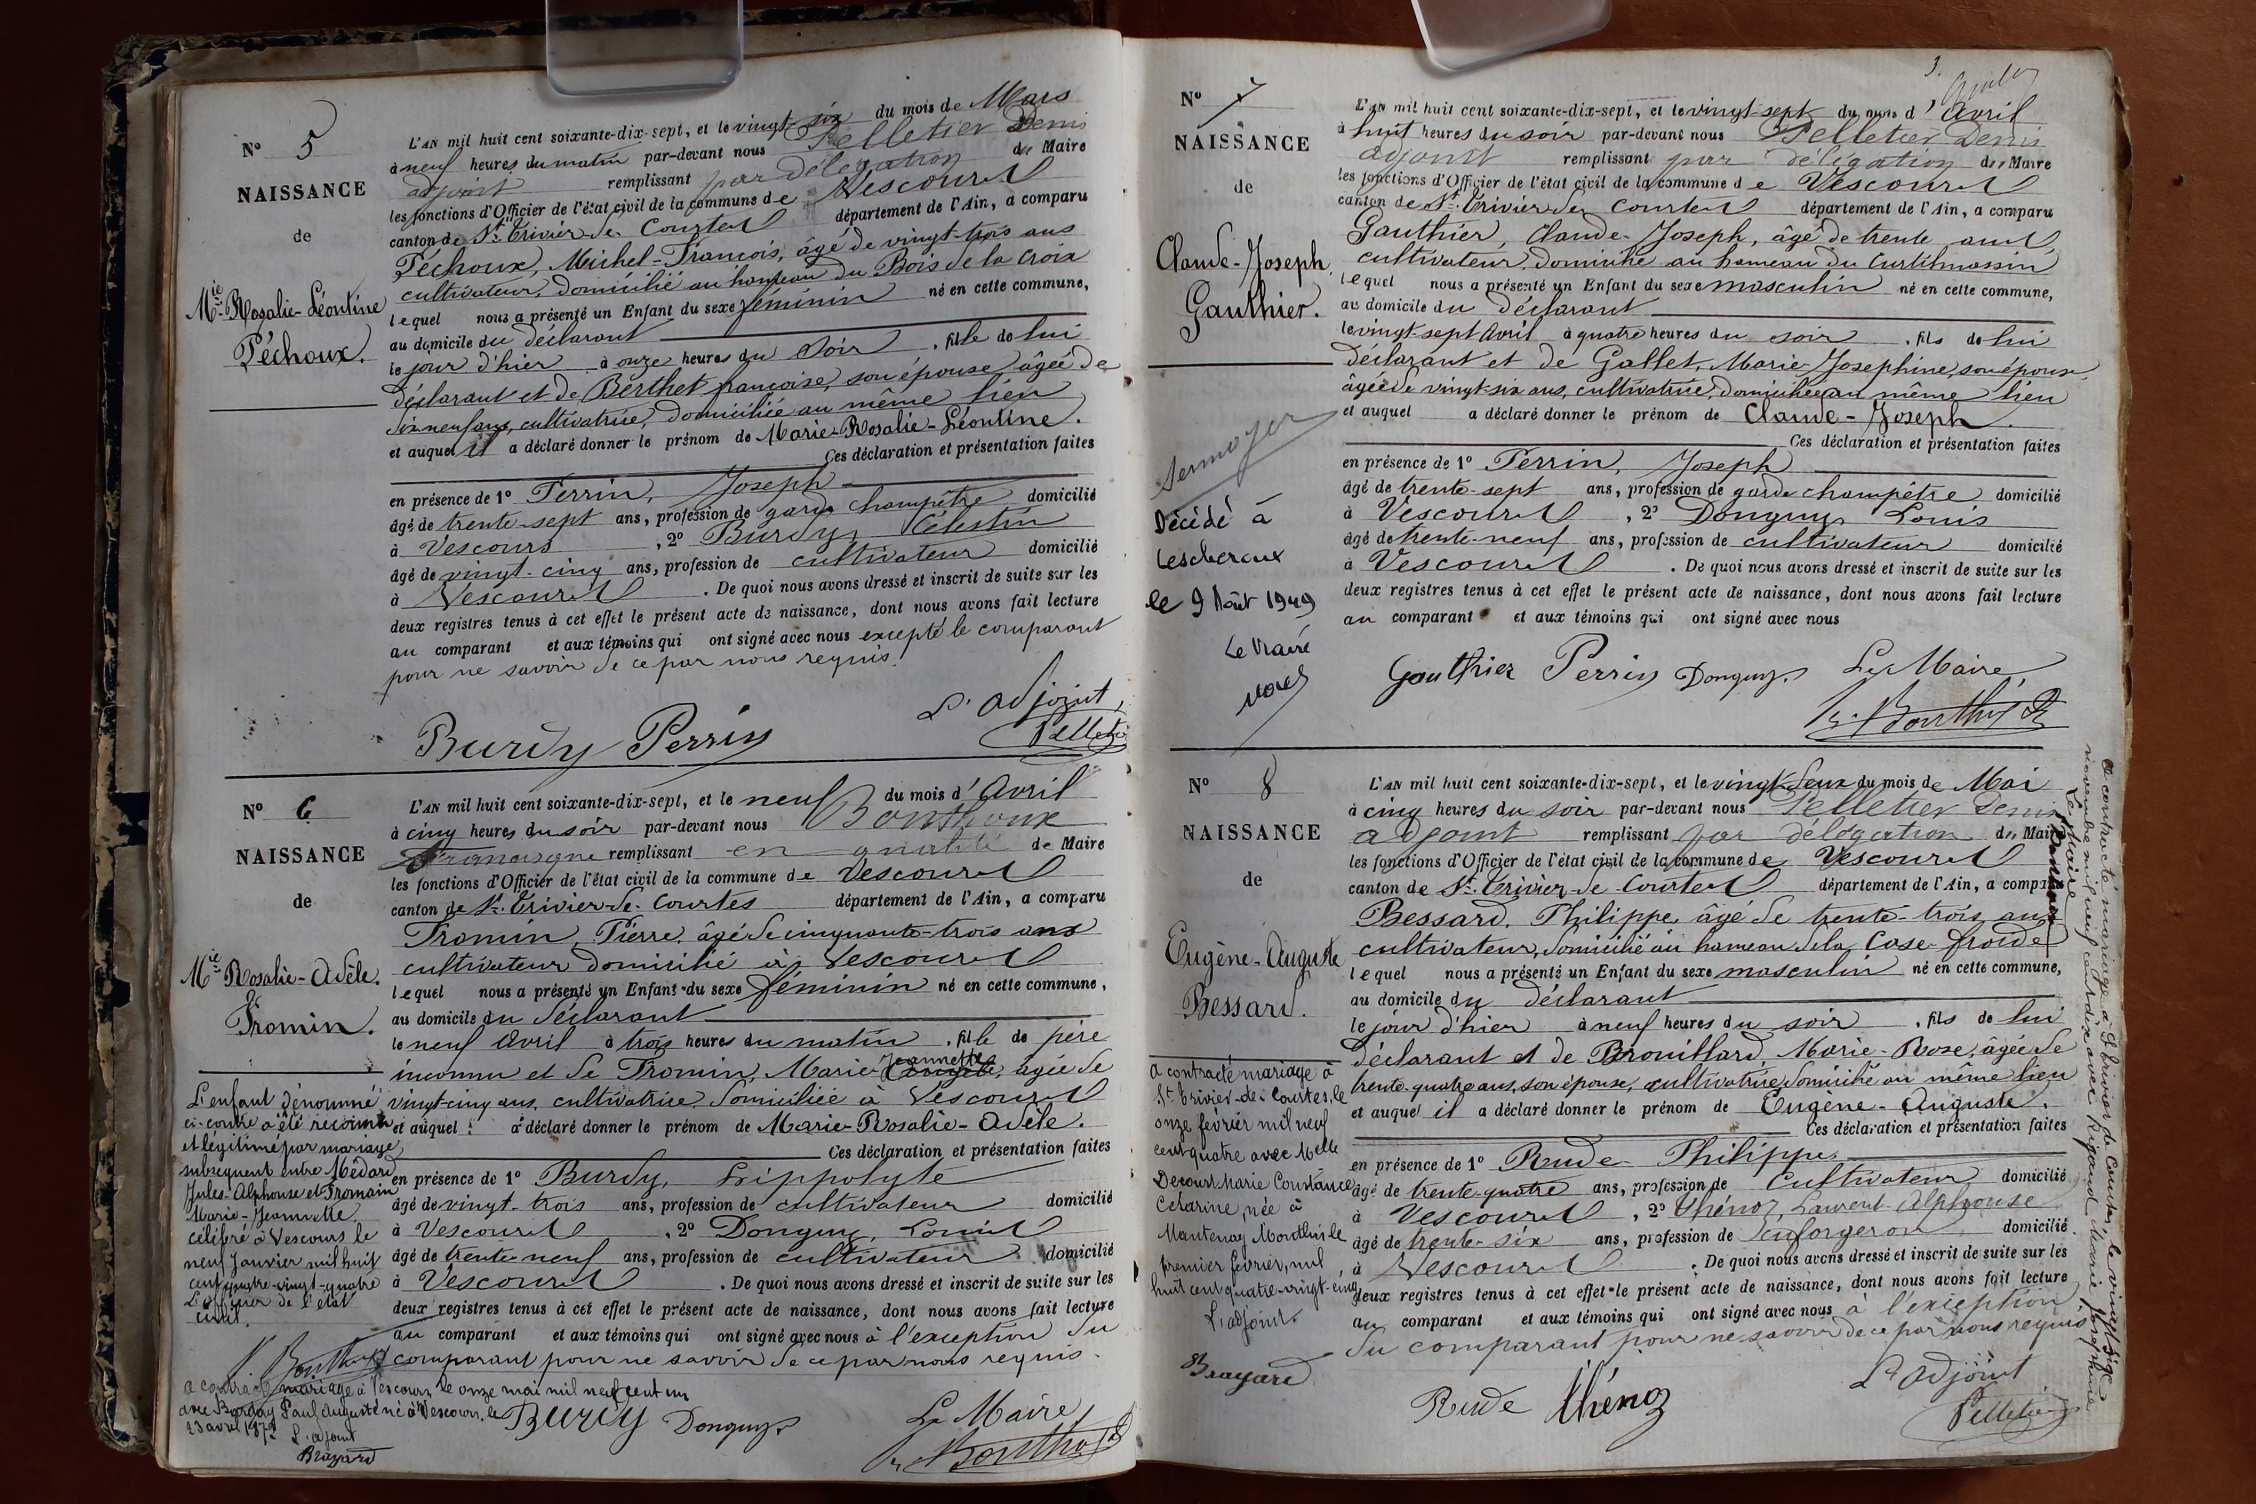 Nº 5
NAISSANCE
de
Mie Rosalie-Léontine
Péchoux.
L'AN mil huit cent soixante-dix-sept, et le vingt-six du mois de Mars
à neuf heures du matin par-devant nous Pelletier Denis
adjoint remplissant par délégation du Maire
les fonctions d'Officier de l'état civil de la commune de Vescours
canton de St. Trivier-de-Courtes département de l'Ain, a comparu
Péchoux, Michel-François, âgé de vingt-trois ans
cultivateur, domicilié au hameau du Bois de la Croix
lequel nous a présenté un Enfant du sexe féminin né en cette commune,
au domicile du déclarant
le jour d'hier à onze heures du soir, fille de lui
déclarant et de Berthet françoise, son épouse âgée de
dix neuf ans, cultivatrice, domiciliée au même lieu
et auquel il a déclaré donner le prénom de Marie-Rosalie-Léontine.
Ces déclaration et présentation faites
en présence de 1º Perrin, Joseph
âgé de trente-sept ans, profession de garde champêtre domicilié
à Vescours, 2º Burdy, Célestin
âgé de vingt-cinq ans, profession de cultivateur domicilié
à Vescours. De quoi nous avons dressé et inscrit de suite sur les
deux registres tenus à cet effet le présent acte de naissance, dont nous avons fait lecture
au comparant et aux témoins qui ont signé avec nous excepté le comparant
pour ne savoir de ce par nous requis.
L'adjoint,
Burdy Perrin Pelletier
Nº 6
NAISSANCE
de
Mie Rosalie-Adèle.
Fromin.
L'AN mil huit cent soixante-dix-sept, et le neuf du mois d'Avril
à cinq heures du soir par-devant nous Bonthoux
remplissant en qualité de Maire
les fonctions d'Officier de l'état civil de la commune de Vescours
canton de St. Trivier-de-Courtes département de l'Ain, a comparu
Fromin, Pierre, âgé de cinquante-trois ans
cultivateur domicilié à Vescours
lequel nous a présenté un Enfant du sexe féminin né en cette commune,
au domicile du déclarant
le neuf Avril à trois heures du matin, fille de père
inconnu et de Fromin, Marie-Jeannette, âgée de
vingt-cinq ans, cultivatrice domiciliée à Vescours
et auquel a déclaré donner le prénom de Marie-Rosalie-Adèle.
Ces déclaration et présentation faites
en présence de 1º Burdy, Hippolyte
âgé de vingt-trois ans, profession de cultivateur domicilié
à Vescours, 2º Donguy, Louis
âgé de trente-neuf ans, profession de cultivateur domicilié
à Vescours. De quoi nous avons dressé et inscrit de suite sur les
deux registres tenus à cet effet le présent acte de naissance, dont nous avons fait lecture
au comparant et aux témoins qui ont signé avec nous à l'exception du
comparant pour ne savoir de ce par nous requis.
Burdy Donguy Le Maire,
Bonthoux
L'enfant dénommé
ci-contre a été reconnu
et légitimé par mariage
subséquent entre Médard
Jules-Alphonse et Fromain
Marie-Jeannette
célébré à Vescours le
neuf Janvier mil huit
cent quatre-vingt-quatre
L'officier de l'état
civil.
Bonthoux
a contracté mariage à Vescours le onze mai mil neuf cent un
avec Paul Auguste né à Vescours le
23 avril
L'adjoint
Brayard
3.
Nº 7
NAISSANCE
de
Claude-Joseph
Gauthier.
L'AN mil huit cent soixante-dix-sept, et le vingt-sept du mois d'Avril
à huit heures du soir par-devant nous Pelletier Denis
adjoint remplissant par délégation du Maire
les fonctions d'Officier de l'état civil de la commune de Vescours
canton de St. Trivier-de-Courtes département de l'Ain, a comparu
Gauthier, Claude-Joseph, âgé de trente ans
cultivateur, domicilié au hameau du Curtilmassin
lequel nous a présenté un Enfant du sexe masculin né en cette commune,
au domicile du déclarant
le vingt-sept Avril à quatre heures du soir, fils de lui
déclarant et de Gallet, Marie-Josephine, son épouse,
âgée de vingt-six ans, cultivatrice, domiciliée au même lieu
et auquel a déclaré donner le prénom de Claude-Joseph.
Ces déclaration et présentation faites
en présence de 1º Perrin, Joseph
âgé de trente-sept ans, profession de garde champêtre domicilié
à Vescours, 2º Donguy Louis
âgé de trente-neuf ans, profession de cultivateur domicilié
à Vescours. De quoi nous avons dressé et inscrit de suite sur les
deux registres tenus à cet effet le présent acte de naissance, dont nous avons fait lecture
au comparant et aux témoins qui ont signé avec nous
Gauthier Perrin Donguy Le Maire,
Bonthoux
Sermoyer
Décédé à
Lescheroux
le 9 Août 1949
Le Maire
Nº 8
NAISSANCE
de
Eugène-Auguste
Bessard.
L'AN mil huit cent soixante-dix-sept, et le vingt-deux du mois de Mai
à cinq heures du soir par-devant nous Pelletier Denis
adjoint remplissant par délégation du Maire
les fonctions d'Officier de l'état civil de la commune de Vescours
canton de St. Trivier-de-Courtes département de l'Ain, a comparu
Bessard, Philippe, âgé de trente-trois ans
cultivateur, domicilié au hameau de la Case froide
lequel nous a présenté un Enfant du sexe masculin né en cette commune,
au domicile du déclarant
le jour d'hier à neuf heures du soir, fils de lui
déclarant et de Brouillard, Marie-Rose, âgée de
trente-quatre ans, son épouse, cultivatrice domicilié au même lieu
et auquel il a déclaré donner le prénom de Eugène-Auguste.
Ces déclaration et présentation faites
en présence de 1º Rude Philippe
âgé de trente-quatre ans, profession de cultivateur domicilié
à Vescours, 2º Thénoz, Laurent Alphonse
âgé de trente-six ans, profession de forgeron domicilié
à Vescours. De quoi nous avons dressé et inscrit de suite sur les
deux registres tenus à cet effet le présent acte de naissance, dont nous avons fait lecture
au comparant et aux témoins qui ont signé avec nous à l'exception
du comparant pour ne savoir de ce par nous requis
L'adjoint
Rude Thénoz Pelletier
a contracté mariage à
St Trivier-de-Courtes, le
onze février mil neuf
cent quatre avec Melle
Decourt Marie Constance
Célarine, née à
Mantenay Montlin le
premier février, mil
huit cent quatre-vingt-cinq
L'adjoint.
Brayard
A contracté mariage à St Trivier de Courtes, le vingt six
novembre mil neuf cent dix avec Rigaud Marie Josephine
Le Maire